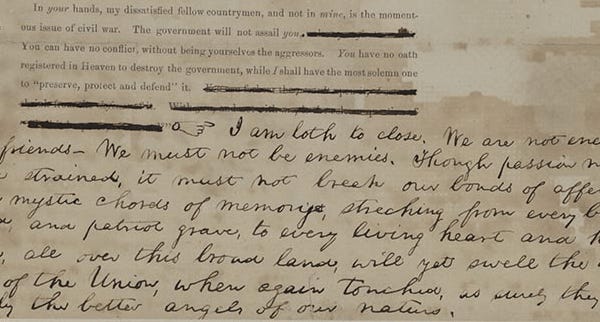 In your hands, my dissatisfied fellow countrymen, and not in mine, is the moment-
ous issue of civil war. The government will not assail you,
You can have no conflict, without being yourselves the aggressors. You have no oath
registered in Heaven to destroy the government, while I shall have the most solemn one
to "preserve, protect and defend" it.
I am loth to close. We are not ene
friends— We must not be enemies. Though passion
strained, it must not break our bonds of affe
mystic chords of memory, streching from every b
and patriot grave, to every living heart and
all over this broad land, will yet swell the
of the Union, when again touched, as surely they
the better angels of our nature.